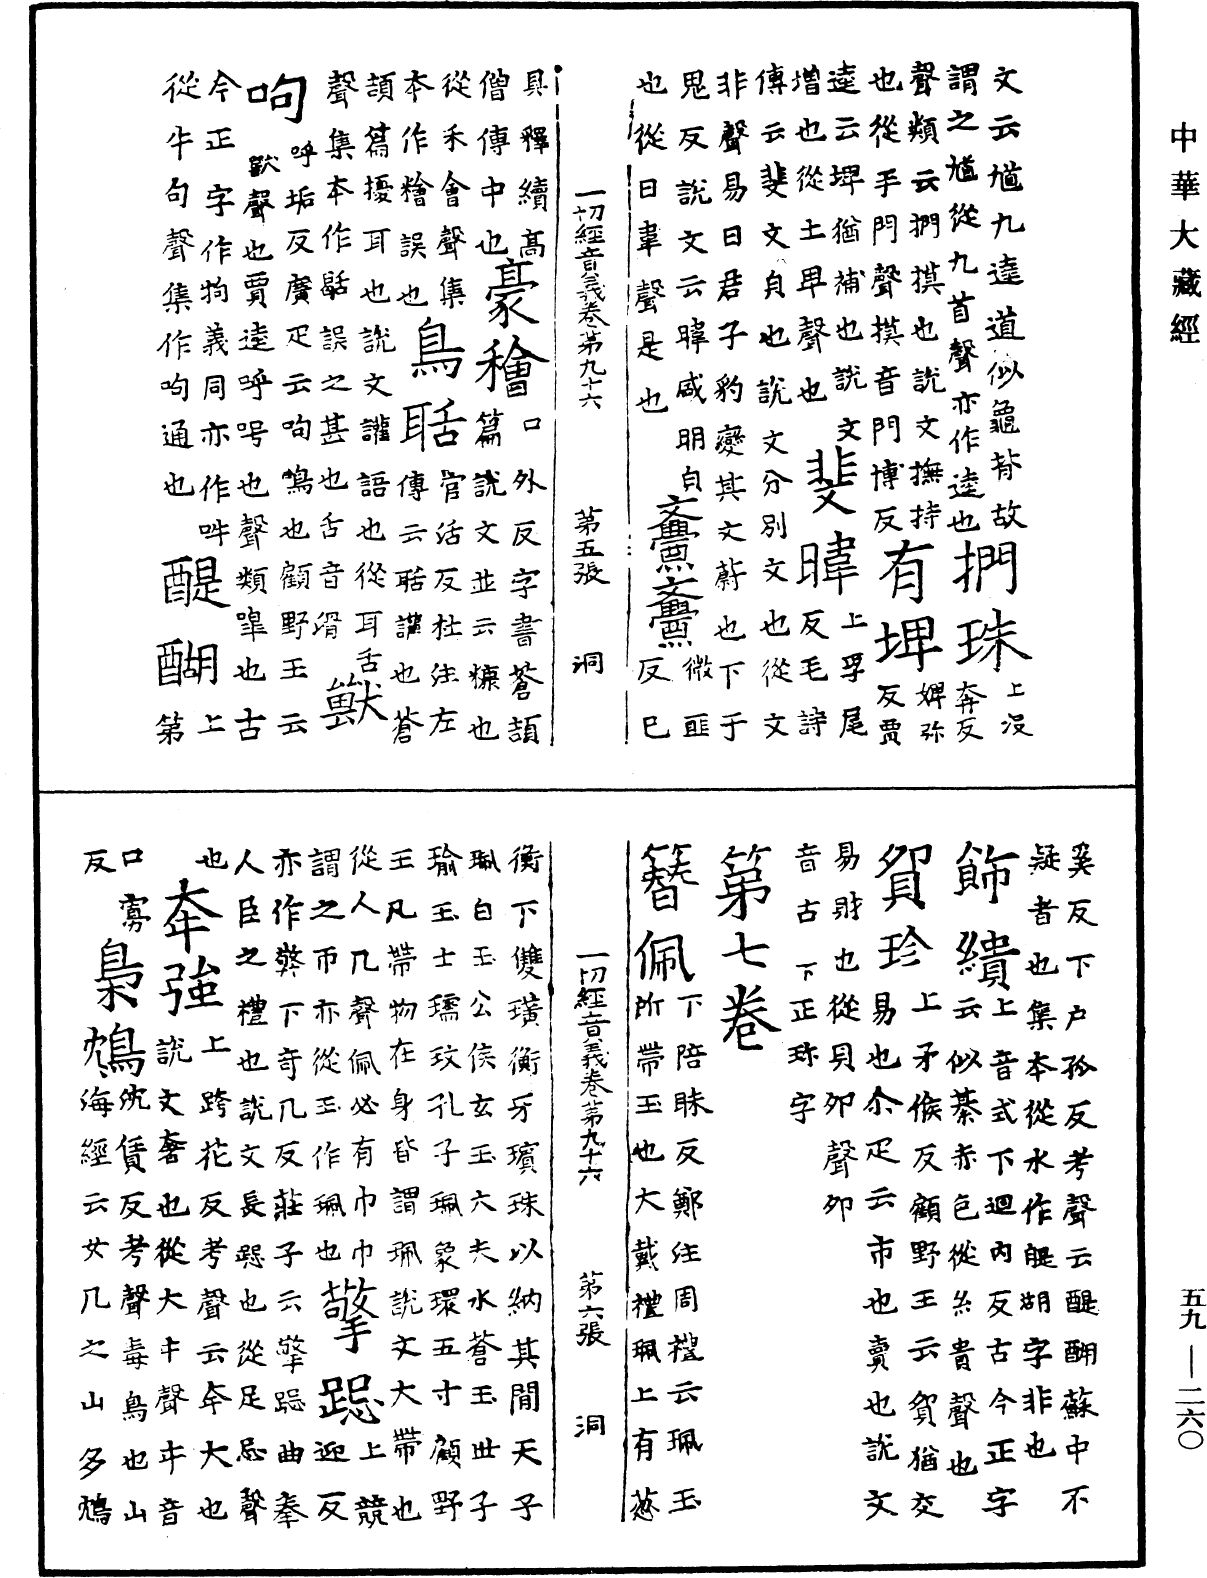 中華大藏經
文云馗九逵道似龜背故
謂之馗從九首聲亦作逵也捫珠上没奔反
聲類云捫摸也說文撫持
也從手門聲摸音門博反有埤婢弥反賈
逵云埤猶補也說文
增也從土卑聲也斐暐上孚尾反毛詩
傳云斐文皃也說文分別文也從文
非聲易曰君子豹變其文蔚也下于
鬼反說文云暐盛明皃亹亹微匪反巳
也從日韋聲是也
一切經音義卷第九十六 第五張 洞
具釋續髙
僧傳中也豪穭口外反字書蒼頡篇說文並云糠也
從禾會聲集
本作糩誤也鳥聒官活反杜注左傳云聒讙也蒼
頡篇擾耳也說文讙語也從耳舌
聲集本作䛡誤之甚也舌音滑獸
呴呼垢反廣疋云呴鳴也顧野王云
獸聲也賈逵呼号也聲類嘷也古
今正字作㸸義同亦作吽
從牛句聲集作呴通也醍醐上第
奚反下户孤反考聲云醍醐蘇中不
凝者也集本從水作醍湖字非也
飾繢上音式下迴内反古今正字云似綦赤色從糸貴聲也
貿珍上矛候反顧野王云貿猶交易也尒疋云市也賣也說文
易財也從貝丣聲丣
音古下正珎字
第七卷
簪佩下陪昧反鄭注周禮云珮玉所帶玉也大戴禮珮上有葱
衡下雙璜衡牙璸珠以納其間天子
珮白玉公侯玄玉大夫水蒼玉世子
瑜玉士瓀玟孔子珮象環五寸顧野
王凡帶物在身皆謂珮說文大帶也
從人凡聲佩必有巾巾上競
謂之帀亦從玉作珮也擎跽迎反
亦作檠下奇几反莊子云擎跽曲拳
人臣之禮也說文長跽也從足忌聲
也夲強上跨花反考聲云夲大也
說文奢也從大丰聲丰音
口寡反梟鴆沈賃反考聲毒鳥也山海經云女几之山多鴆
一切經音義卷第九十六 第六張 洞
五九—二六〇